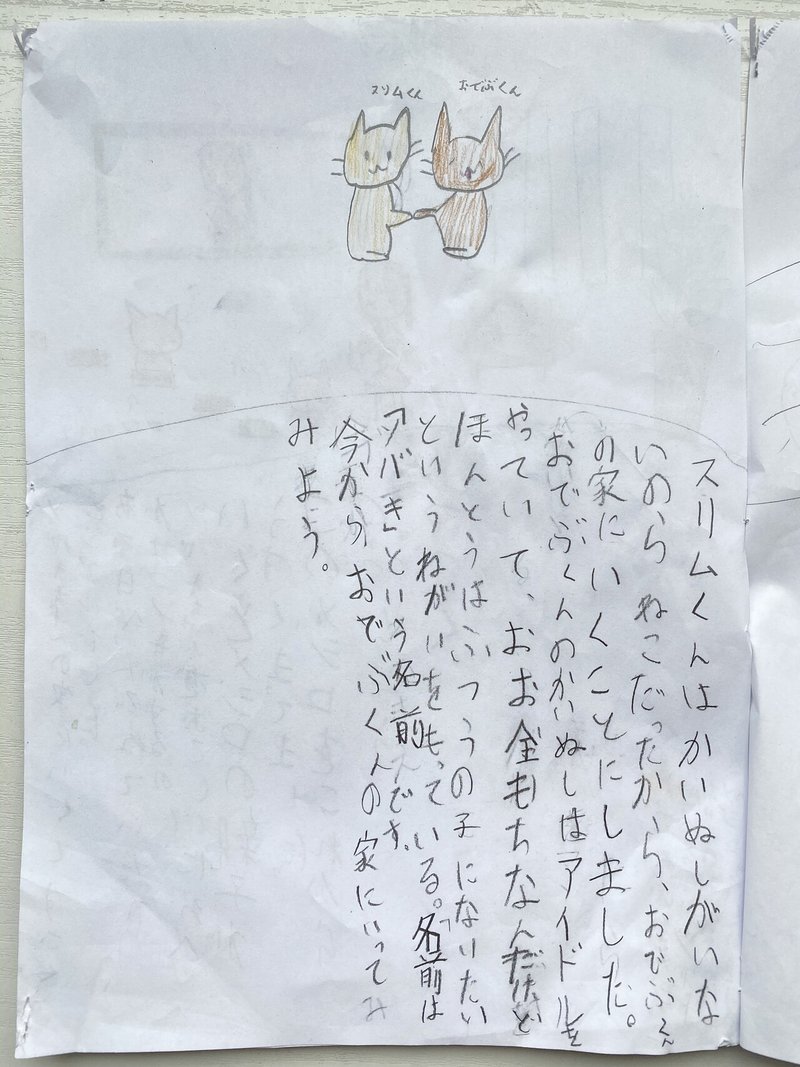 スリムくん
おでぶくん
スリムくんはかいぬしがいな
いのらねこだったから、おでぶくん
の家にいくことにしました。
おでぶくんのかいぬしはアイドルを
やっていて、おお金もちなんだけど
ほんとうはふつうの子になりたい
というねがいをもっている。名前は
「ツバキ」という名前です。
今からおでぶくんの家にいって
みよう。